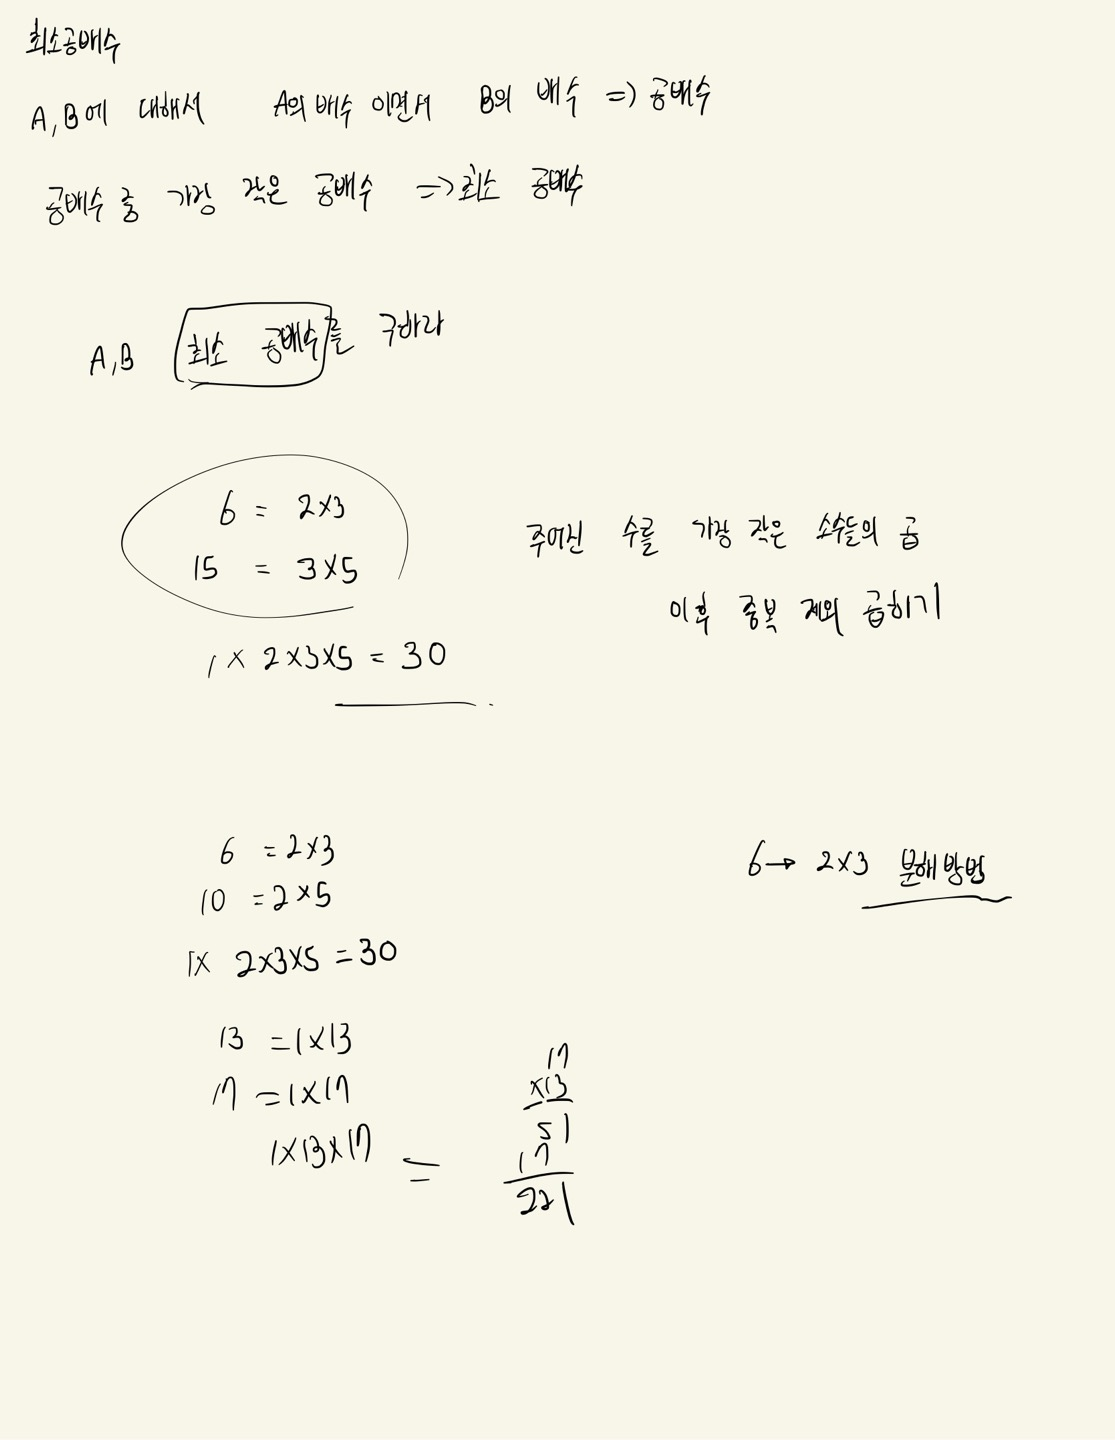 최소공배수
A,B에 대해서 A의 배수 이면서 B의 배수 => 공배수
공배수 중 가장 작은 공배수 => 최소 공배수
A,B 최소 공배수를 구하라
6 = 2×3
15 = 3×5
1 × 2×3×5 = 30
주어진 수를 가장 작은 소수들의 곱
이후 중복 제외 곱하기
6 = 2×3
10 = 2×5
1× 2×3×5 = 30
6 → 2×3 분해 방법
13 = 1×13
17 = 1×17
1×13×17 =
17
×13
51
17
221